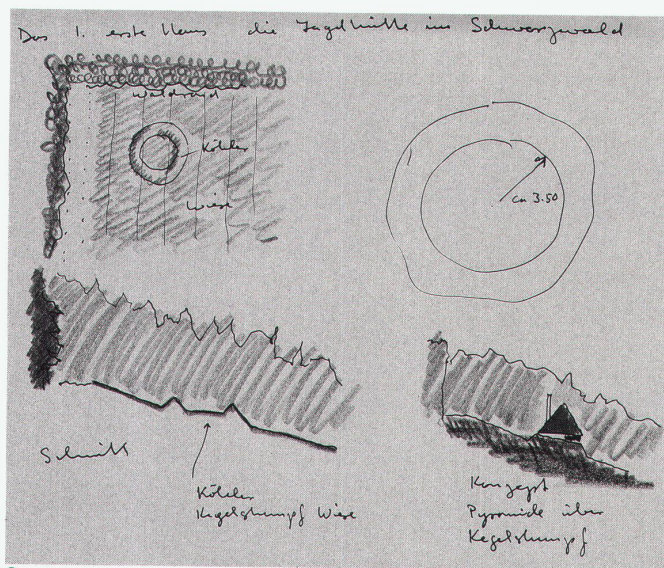 Das 1. erste Haus die Jagdhütte im Schwarzwald
Waldrand
Köhler
Wiese
ca 3.50
Schnitt
Köhler
Kegelstumpf Wiese
Konzept
Pyramide über
Kegelstumpf